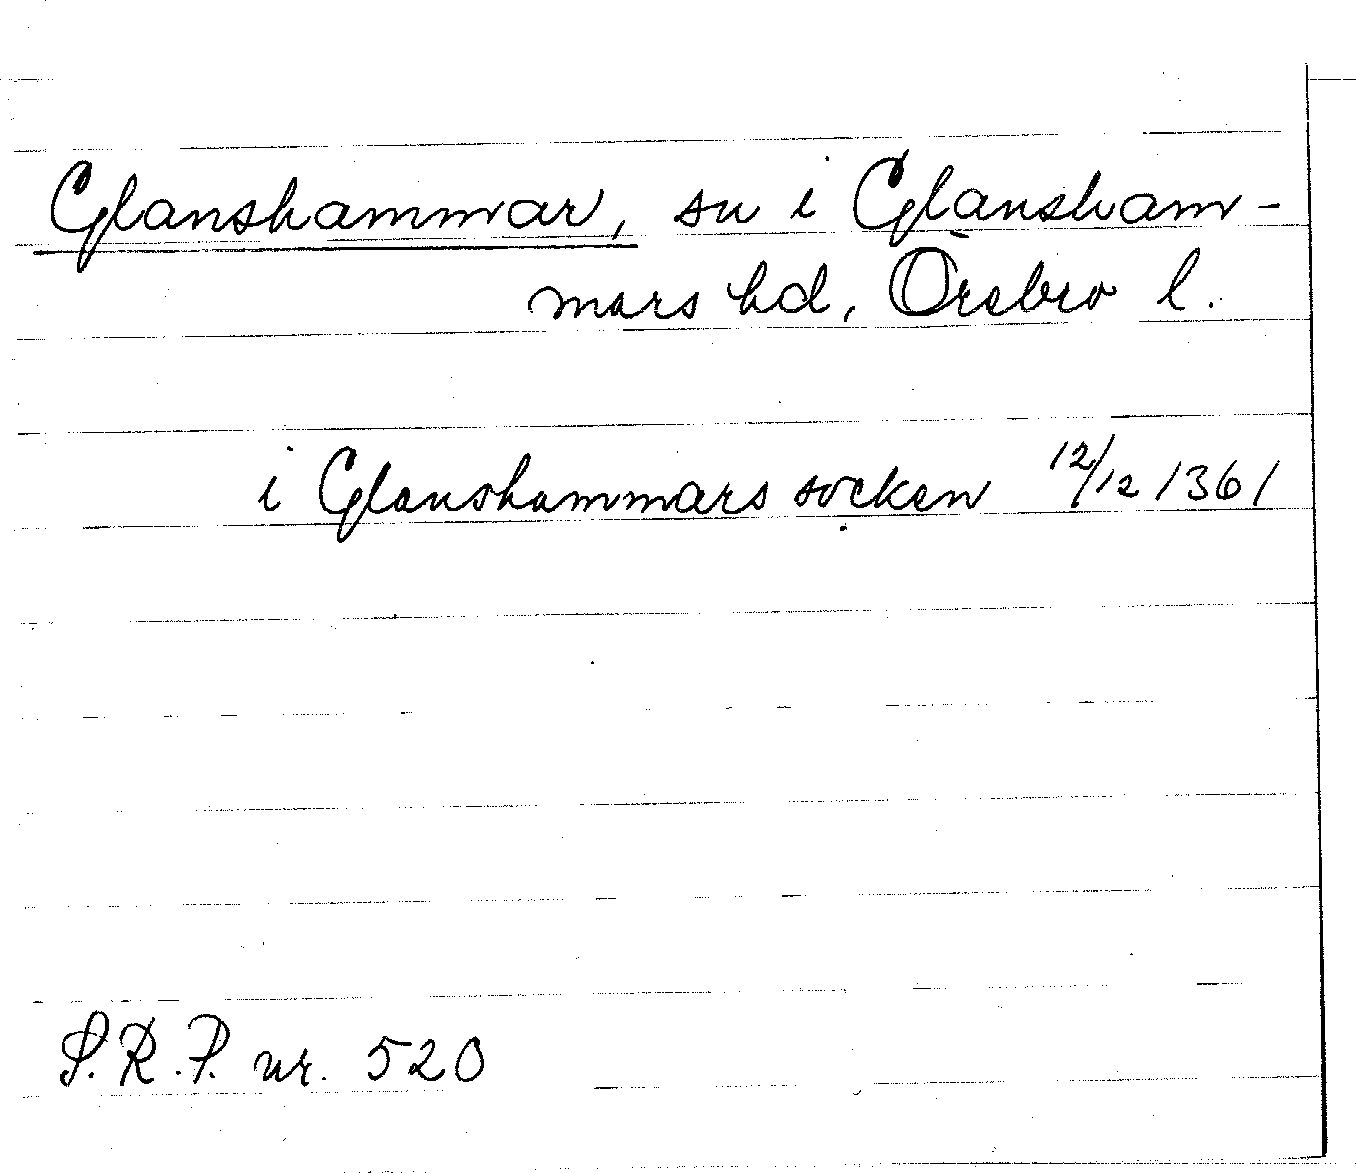 Glanshammar, sn i Glansham-
mars hd, Örebro l.
i Glanshammars socken 12/12 1361
S.R.P. nr. 520